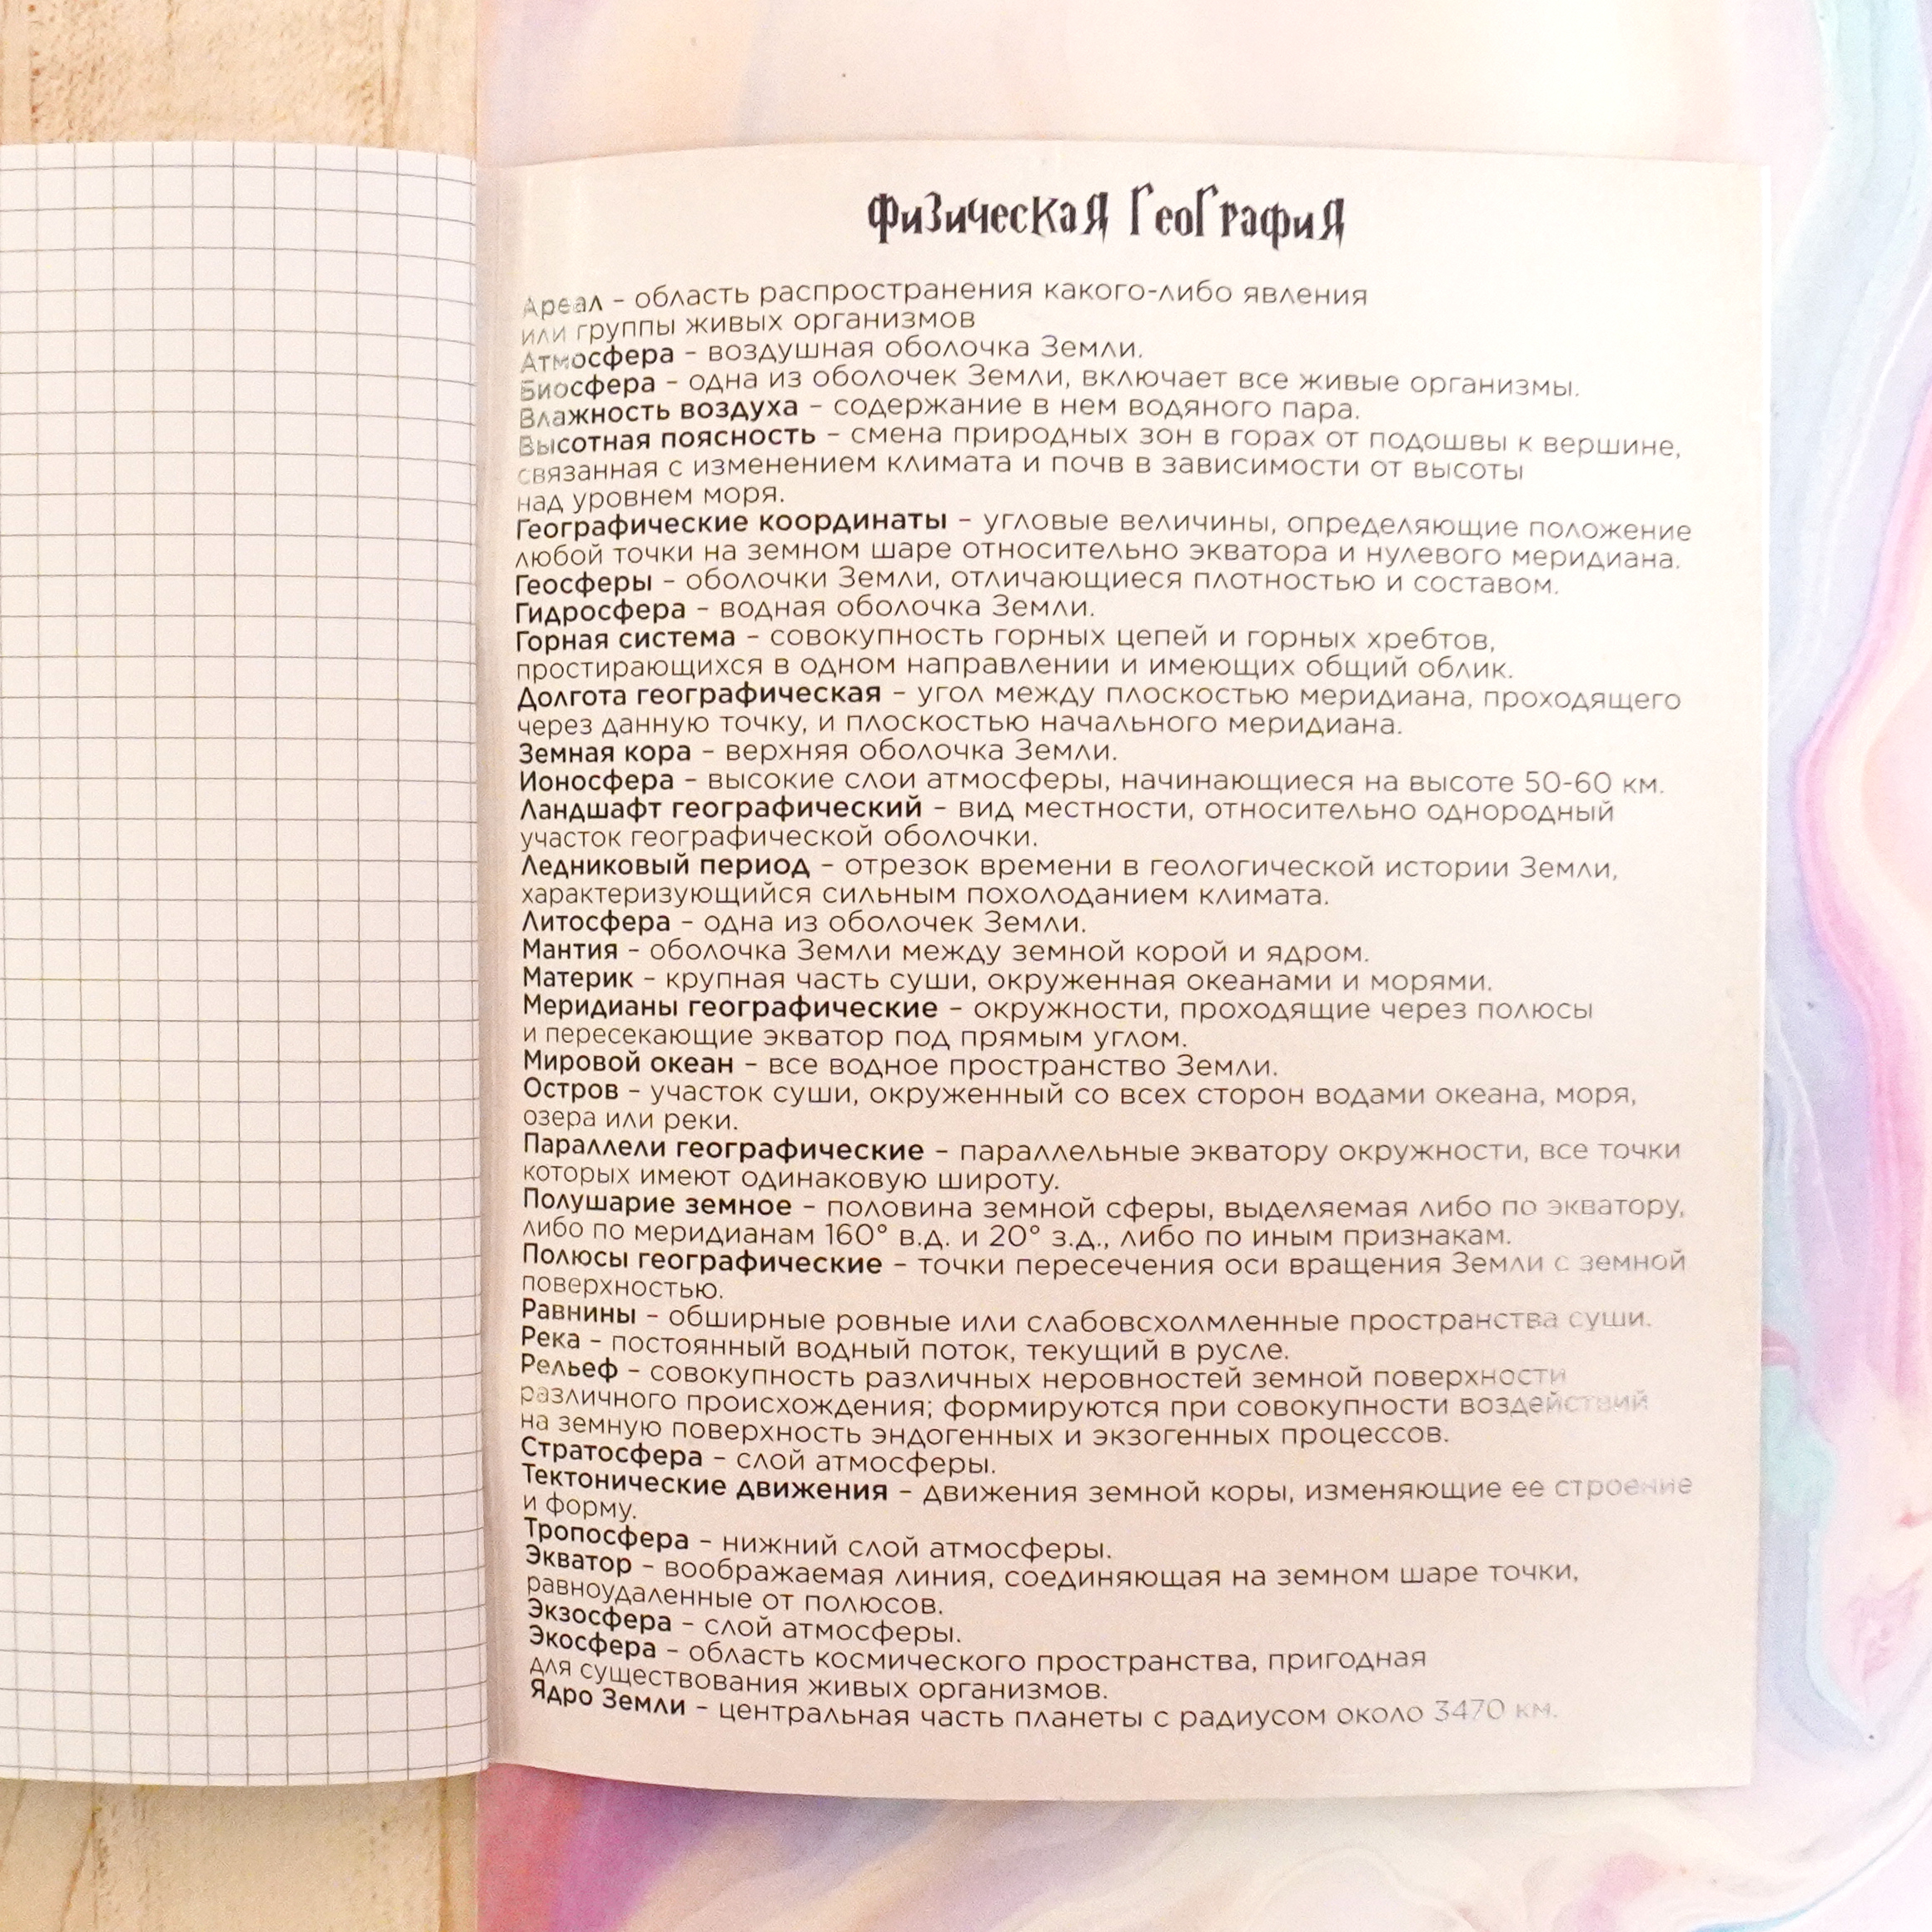 Физическая География
Ареал – область распространения какого-либо явления
или группы живых организмов
Атмосфера – воздушная оболочка Земли.
Биосфера – одна из оболочек Земли, включает все живые организмы.
Влажность воздуха – содержание в нем водяного пара.
Высотная поясность – смена природных зон в горах от подошвы к вершине,
связанная с изменением климата и почв в зависимости от высоты
над уровнем моря.
Географические координаты – угловые величины, определяющие положение
любой точки на земном шаре относительно экватора и нулевого меридиана.
Геосферы – оболочки Земли, отличающиеся плотностью и составом.
Гидросфера – водная оболочка Земли.
Горная система – совокупность горных цепей и горных хребтов,
простирающихся в одном направлении и имеющих общий облик.
Долгота географическая – угол между плоскостью меридиана, проходящего
через данную точку, и плоскостью начального меридиана.
Земная кора – верхняя оболочка Земли.
Ионосфера – высокие слои атмосферы, начинающиеся на высоте 50-60 км.
Ландшафт географический – вид местности, относительно однородный
участок географической оболочки.
Ледниковый период – отрезок времени в геологической истории Земли,
характеризующийся сильным похолоданием климата.
Литосфера – одна из оболочек Земли.
Мантия – оболочка Земли между земной корой и ядром.
Материк – крупная часть суши, окруженная океанами и морями.
Меридианы географические – окружности, проходящие через полюсы
и пересекающие экватор под прямым углом.
Мировой океан – все водное пространство Земли.
Остров – участок суши, окруженный со всех сторон водами океана, моря,
озера или реки.
Параллели географические – параллельные экватору окружности, все точки
которых имеют одинаковую широту.
Полушарие земное – половина земной сферы, выделяемая либо по экватору,
либо по меридианам 160° в.д. и 20° з.д., либо по иным признакам.
Полюсы географические – точки пересечения оси вращения Земли с земной
поверхностью.
Равнины – обширные ровные или слабовсхолмленные пространства суши.
Река – постоянный водный поток, текущий в русле.
Рельеф – совокупность различных неровностей земной поверхности
различного происхождения; формируются при совокупности воздействий
на земную поверхность эндогенных и экзогенных процессов.
Стратосфера – слой атмосферы.
Тектонические движения – движения земной коры, изменяющие ее строение
и форму.
Тропосфера – нижний слой атмосферы.
Экватор – воображаемая линия, соединяющая на земном шаре точки,
равноудаленные от полюсов.
Экзосфера – слой атмосферы.
Экосфера – область космического пространства, пригодная
для существования живых организмов.
Ядро Земли – центральная часть планеты с радиусом около 3470 км.